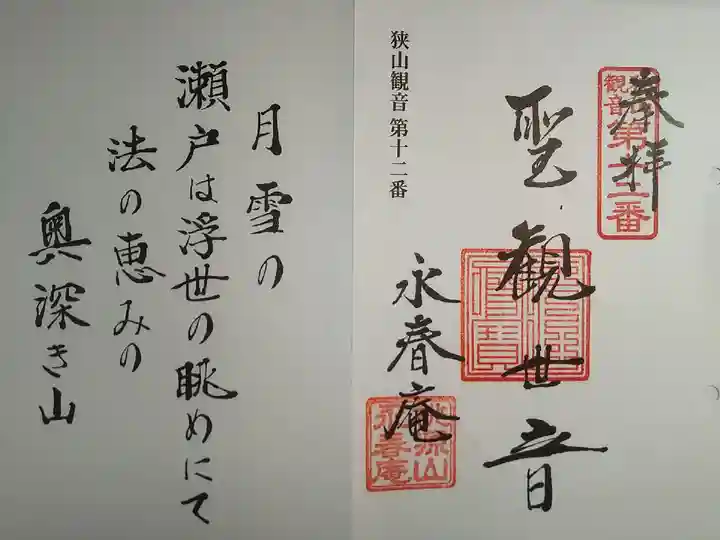 奉拝
観音
第十二番
聖観世音
狭山観音 第十二番
永春庵
永春庵
月雪の
瀬戸は浮世の眺めにて
法の恵みの
奥深き山